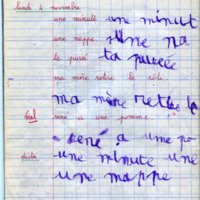 lundi 4 novembre
une minute une minut
une nappe une na
la purée la purée
ma mère retire le rôti
ma mère retire le
rené a une pomme
rené a une po
dictée une minute une
une nappe